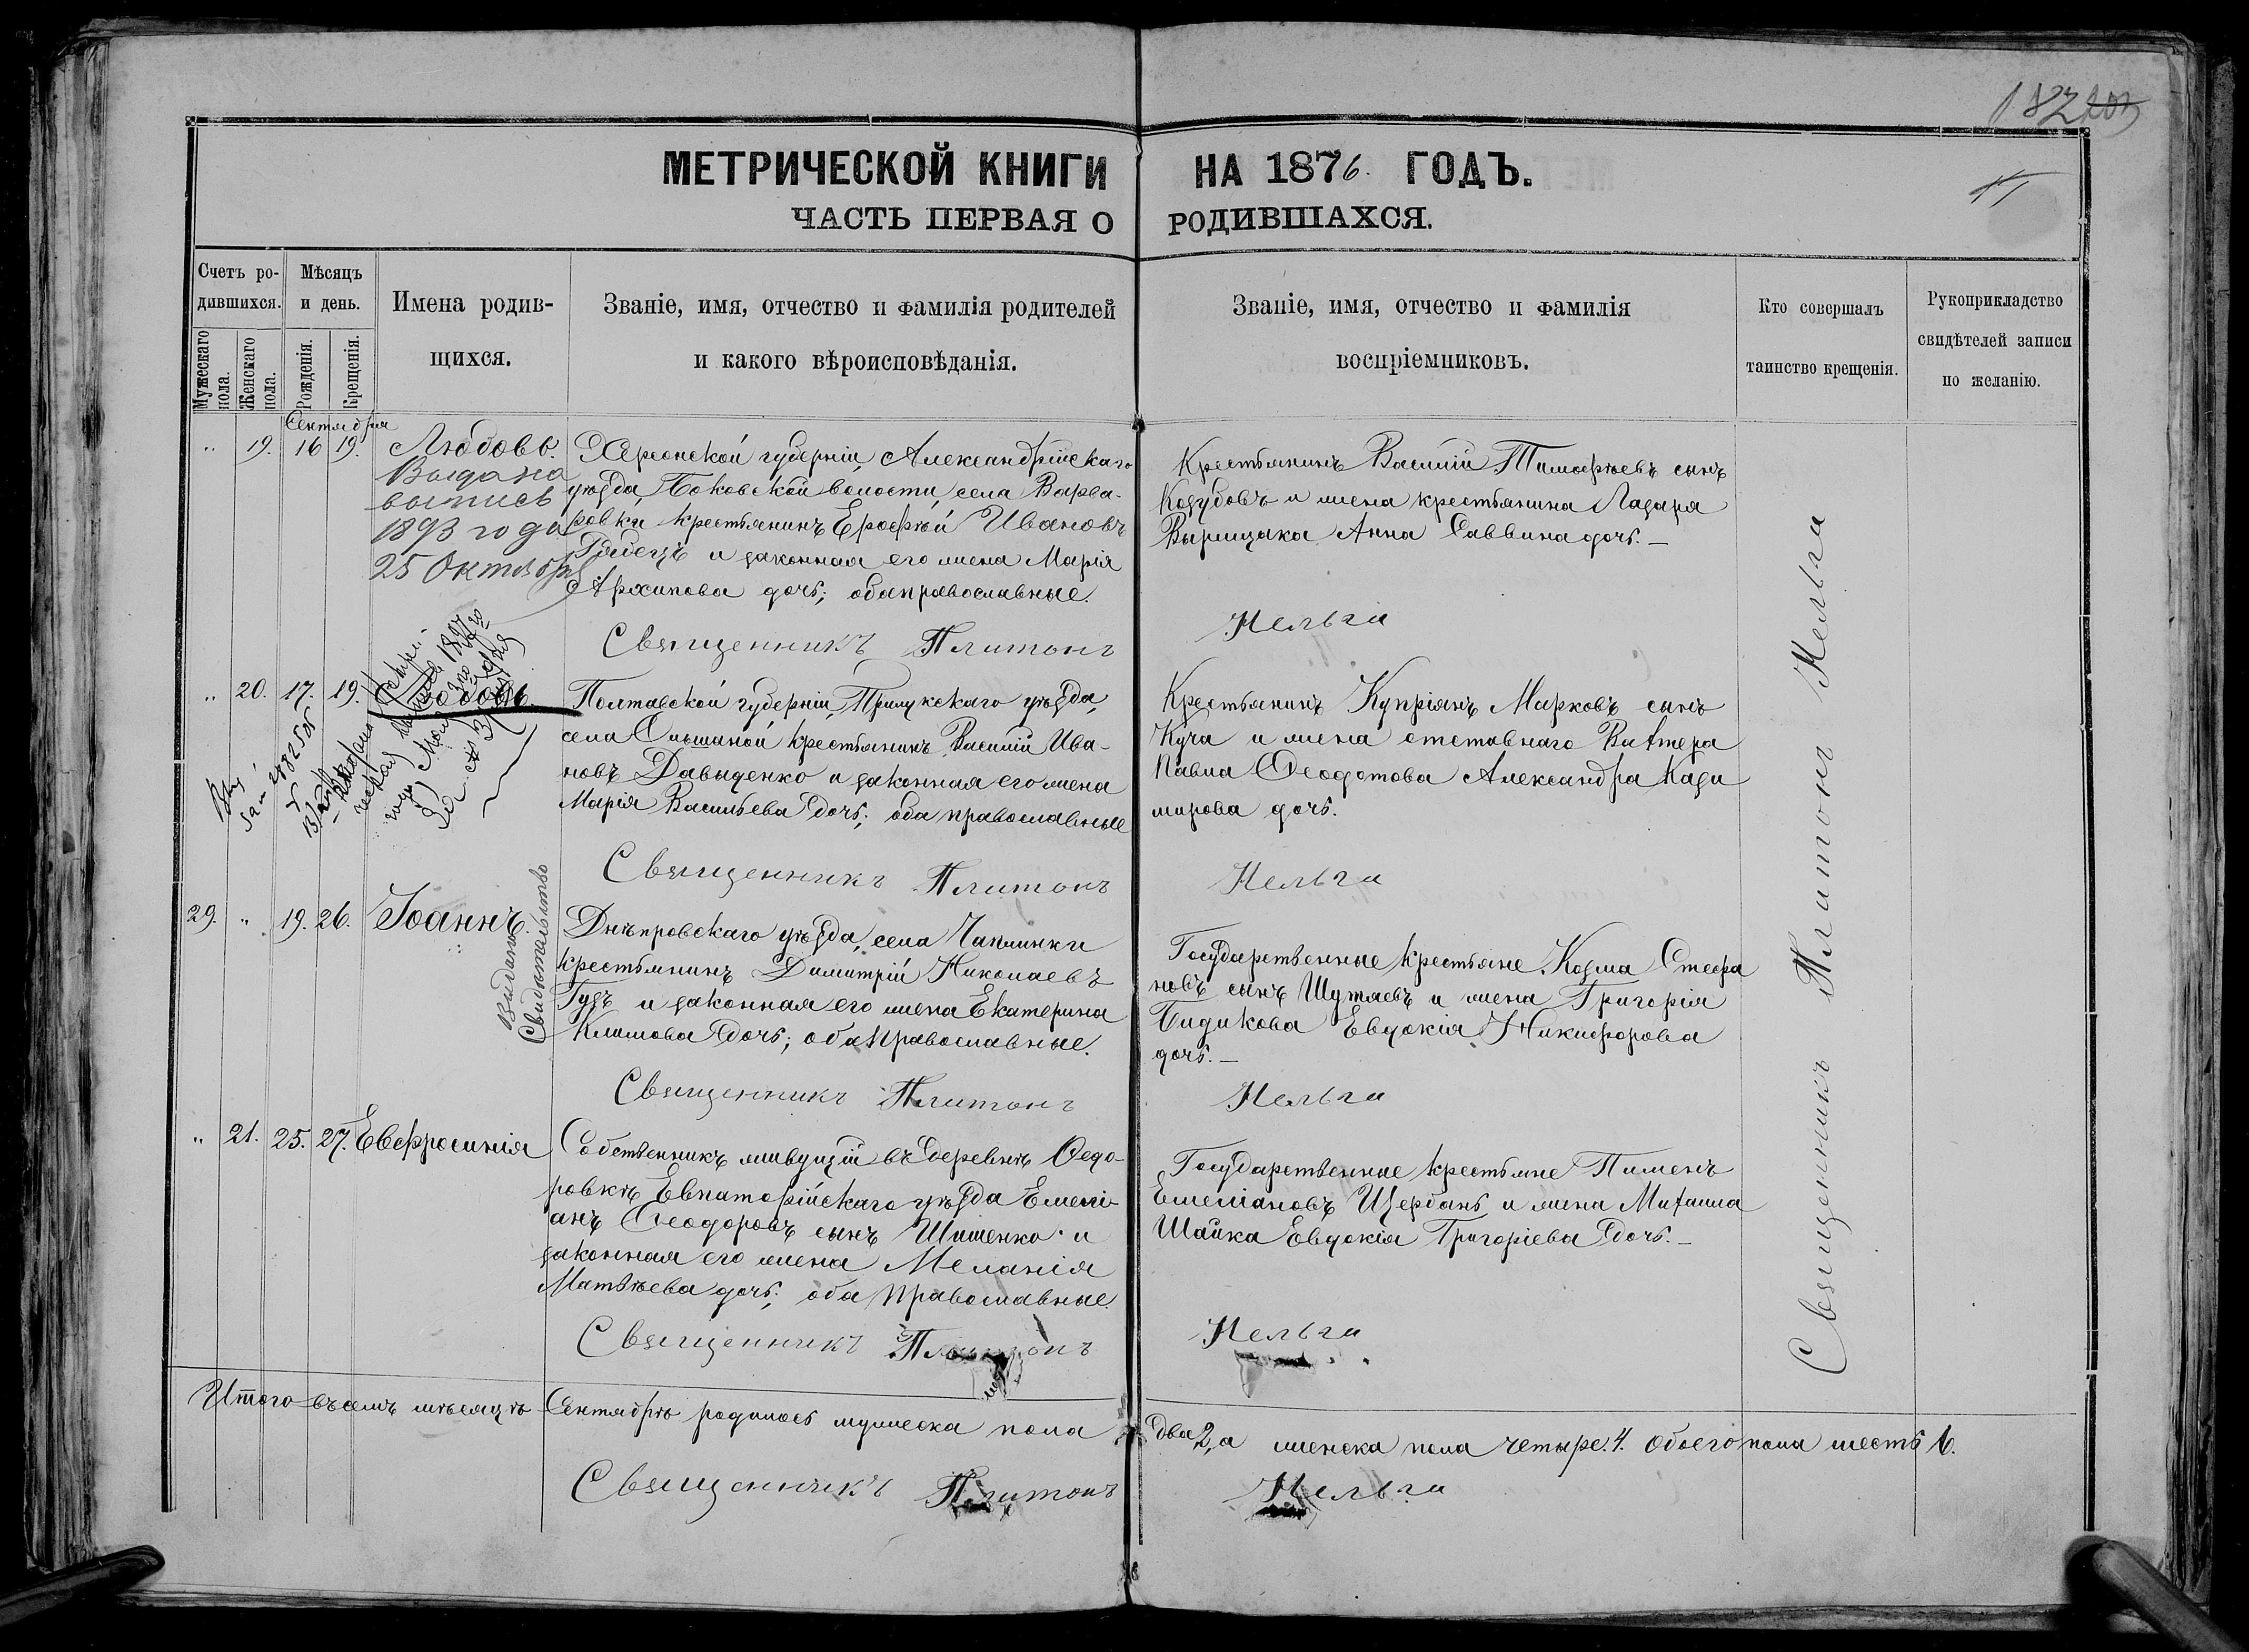 182 203
МЕТРИЧЕСКОЙ КНИГИ НА 1876. ГОДЪ.
ЧАСТЬ ПЕРВАЯ О РОДИВШАХСЯ.
Счетъ ро-
дившихся.
Мужескаго пола.
Женскаго пола.
Мѣсяцъ
и день.
Рожденія.
Крещенія.
Имена родив-
щихся.
Званіе, имя, отчество и фамилія родителей
и какого вѣроисповѣданія.
Званіе, имя, отчество и фамилія
воспріемниковъ.
Кто совершалъ
таинство крещенія.
Рукоприкладство
свидѣтелей записи
по желанію.
Сентября
" 19. 16 19. Любовь.
Выдана
выпись
1893 года
25 Октября
Херсонской губерніи, Александрійскаго
уѣзда, Боковской волости, села Варва-
ровки крестьянинъ Ерофѣй Ивановъ
и законная его жена Марія
Архипова дочь; оба православные.
Священникъ Платонъ
Крестьянинъ Василій Тимофѣевъ сынъ
Козубовъ и жена крестьянина Лазаря
Вырицака Анна Саввина дочь. —
Нельга
" 20. 17. 19. Любовь.
Полтавской губерніи, Прилукскаго уѣзда,
села Ольшаной крестьянинъ Василій Ива-
новъ Давыденко и законная его жена
Марія Васильева дочь; оба православные
Священникъ Платонъ
Крестьянинъ Купріянъ Марковъ сынъ
Куча и жена отставнаго Вахтера
Павла Ѳеодотова Александра Кази
мирова дочь.
Нельга
29. " 19. 26. Іоаннъ.
Выдано
Свидѣтельство
Днѣпровскаго уѣзда, села Чаплинки
крестьянинъ Димитрій Николаевъ
Гузъ и законная его жена Екатерина
Климова дочь; оба православные.
Священникъ Платонъ
Государственные крестьяне Козма Стефа
новъ сынъ Шутяевъ и жена Григорія
Бидикова Евдокія Никифорова
дочь. —
Нельга
" 21. 25. 27. Евфросинія
Собственникъ живущій въ деревнѣ Ѳедо-
ровкѣ Евпаторійскаго уѣзда Емелі-
анъ Ѳеодоровъ сынъ Шишенко и
законная его жена Меланія
Матвѣева дочь; оба православные.
Священникъ Платонъ
Государственные крестьяне Пименъ
Емеліановъ Щербань и жена Михаила
Шайка Евдокія Григоріева дочь. —
Нельга
Священникъ Платонъ Нельга
Итого въ семъ мѣсяцѣ Сентябрѣ родилось мужеска пола два 2, а женска пола четыре. 4. Обоего пола шесть 6.
Священникъ Платонъ Нельга